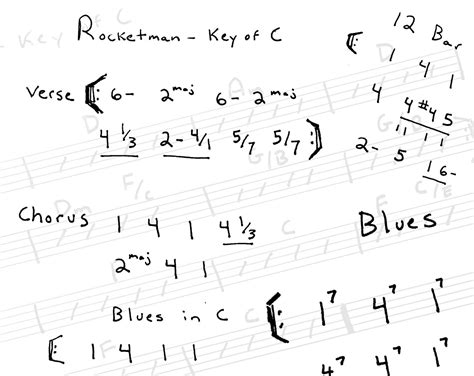 Rocketman - Key of C
Verse 6- 2maj 6- 2maj
4 1/3 2- 4/1 5/7 5/7
Chorus 1 4 1 4 1/3
2maj 4 1
Blues in C
1 4 1 1
12 Bar
1 4 1
4 4 #4 5
2- 5 1 6-
Blues
1⁷ 4⁷ 1⁷
4⁷ 4⁷ 1⁷